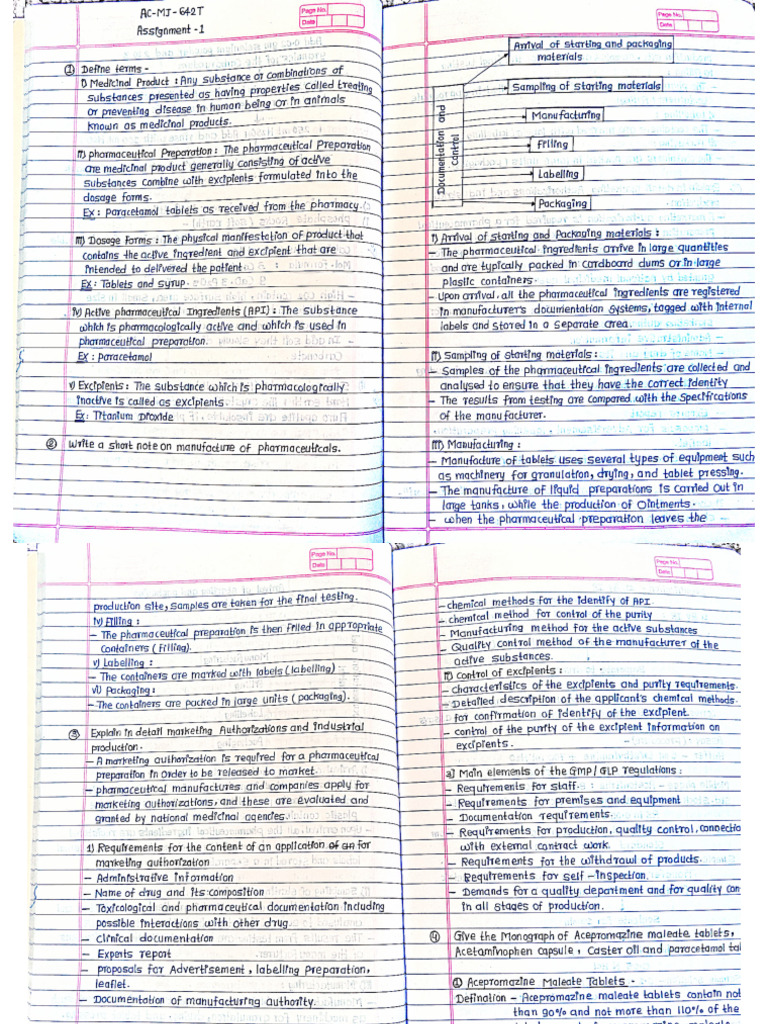 AC-MJ-642T
Assignment -1
Page No.
Date
① Define terms -
i) Medicinal Product : Any substance or combinations of
substances presented as having properties called treating
or preventing disease in human being or in animals
known as medicinal products.
ii) pharmaceutical Preparation : The pharmaceutical Preparation
are medicinal product generally consisting of active
substances combine with excipients formulated into the
dosage forms.
Ex : Paracetamol tablets as received from the pharmacy.
iii) Dosage Forms : The physical manifestation of product that
contains the active ingredient and excipient that are
intended to delivered the patient.
Ex : Tablets and syrup.
iv) Active pharmaceutical Ingredients (API) : The substance
which is pharmacologically active and which is used in
pharmaceutical preparation.
Ex : paracetamol
v) Excipients : The substance which is pharmacologically
inactive is called as excipients.
Ex : Titanium Dioxide
② Write a short note on manufacture of pharmaceuticals.
Page No.
Date
Documentation and Control
Arrival of starting and packaging
materials
Sampling of starting materials
Manufacturing
Filling
Labelling
Packaging
i) Arrival of starting and Packaging materials :
- The pharmaceutical ingredients arrive in large quantities
and are typically packed in cardboard dums or in large
plastic containers.
- Upon arrival, all the pharmaceutical ingredients are registered
in manufacturer's documentation systems, tagged with internal
labels and stored in a separate area.
ii) Sampling of starting materials :
- Samples of the pharmaceutical ingredients are collected and
analysed to ensure that they have the correct identity
- The results from testing are compared with the specifications
of the manufacturer.
iii) Manufacturing :
- Manufacture of tablets uses several types of equipment such
as machinery for granulation, drying, and tablet pressing.
- The manufacture of liquid preparations is carried out in
large tanks, while the production of ointments.
- when the pharmaceutical preparation leaves the
Page No.
Date
production site, samples are taken for the final testing.
iv) Filling :
- The pharmaceutical preparation is then filled in appropriate
containers (filling).
v) Labelling :
- The containers are marked with labels (labelling)
vi) Packaging :
- The containers are packed in large units (packaging).
③ Explain in detail marketing Authorizations and industrial
production.
- A marketing authorization is required for a pharmaceutical
preparation in order to be released to market.
- pharmaceutical manufactures and companies apply for
marketing authorizations, and these are evaluated and
granted by national medicinal agencies.
1) Requirements for the content of an application of an for
marketing authorization
- Administrative information
- Name of drug and its composition
- Toxicological and pharmaceutical documentation including
possible interactions with other drug.
- clinical documentation
- Experts report
- proposals for Advertisement, labelling preparation,
leaflet.
- Documentation of manufacturing authority.
Page No.
Date
- chemical methods for the identify of API.
- chemical method for control of the purity
- Manufacturing method for the active substances
- Quality control method of the manufacturer of the
active substances.
ii) control of excipients :
- characteristics of the excipients and purity requirements.
- Detailed description of the applicant's chemical methods.
for confirmation of identify of the excipient.
- control of the purity of the excipient information on
excipients.
a) Main elements of the GMP/GLP regulations :
- Requirements for staff.
- Requirements for premises and equipment
- Documentation requirements.
- Requirements for production, quality control, connectio
with external contract work.
- Requirements for the withdrawl of products.
- Requirements for self-inspection.
- Demands for a quality department and for quality con
in all stages of production.
④ Give the Monograph of Acepromazine maleate tablets,
Acetaminophen capsule, Caster oil and paracetamol tab
① Acepromazine Maleate Tablets -
Defination - Acepromazine maleate tablets contain not
than 90% and not more than 110% of the